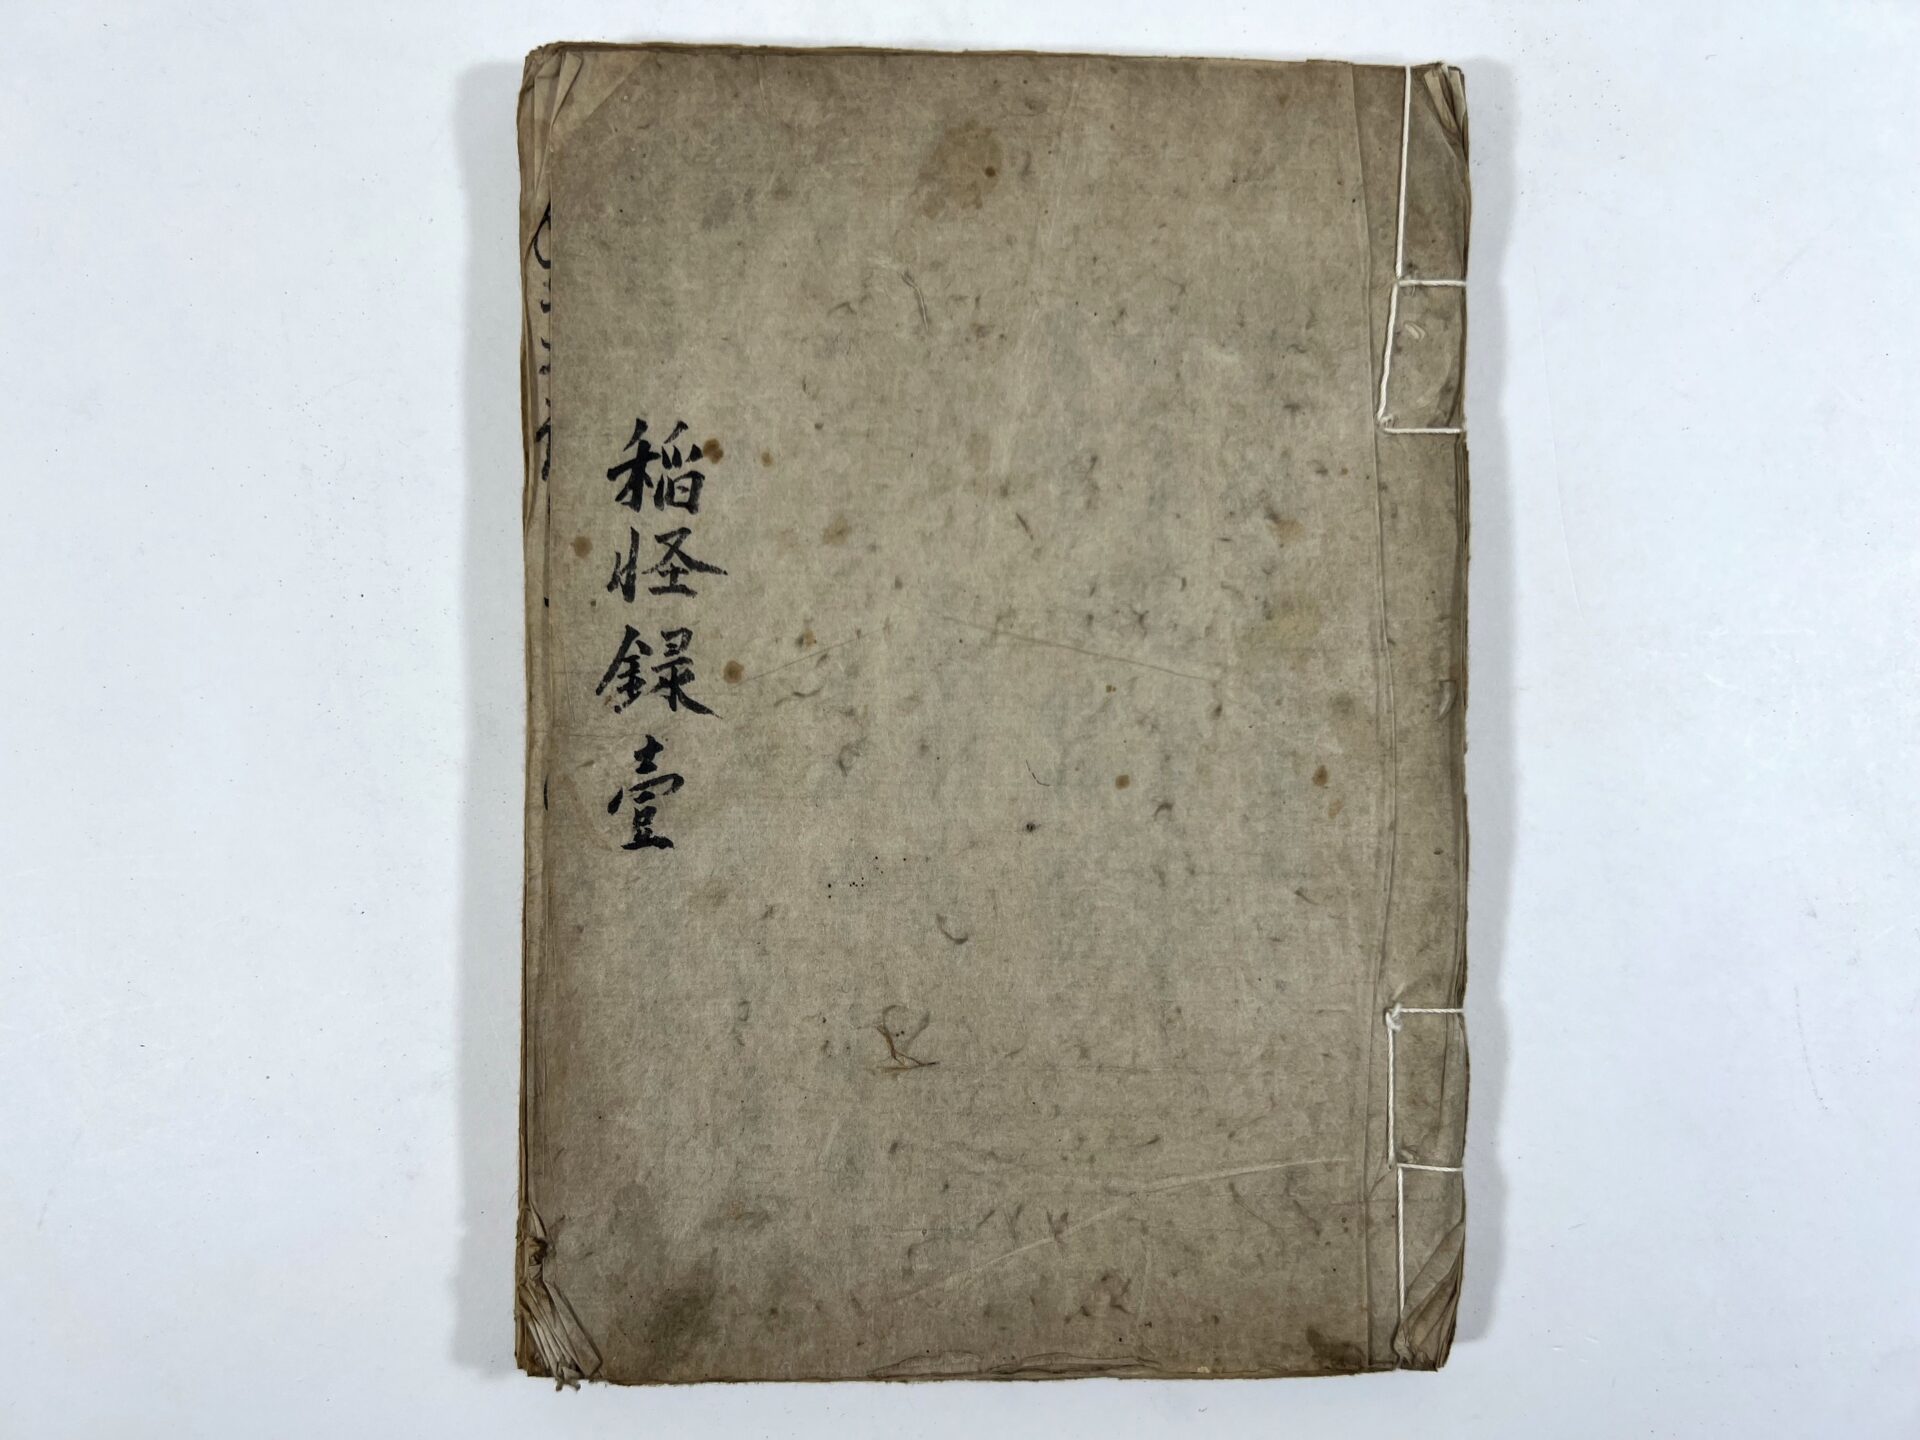 稲怪録壹